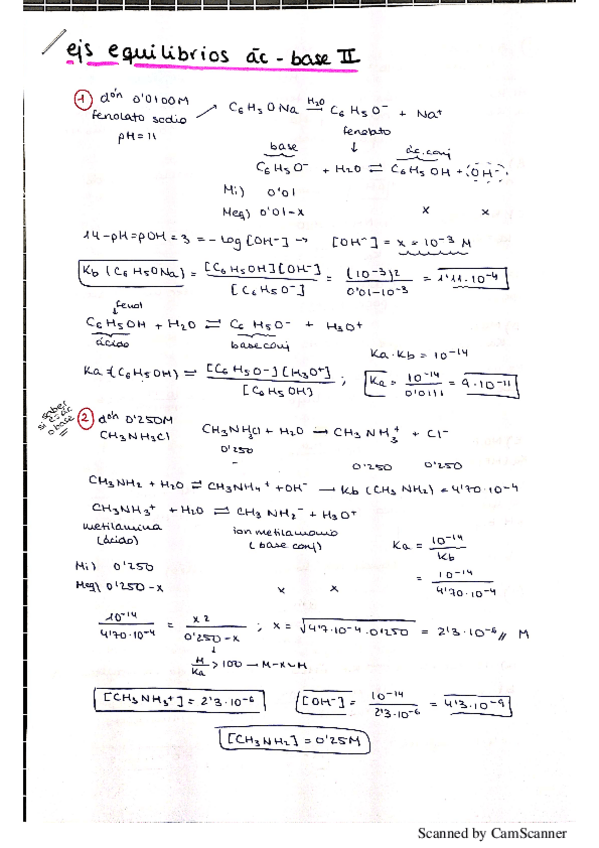 ejs equilibrios ác - base II
① dón 0'0100M
fenolato sodio
pH = 11
C6H5ONa —H2O→ C6H5O⁻ + Na⁺
fenolato
base
ác. conj
C6H5O⁻ + H2O ⇌ C6H5OH + OH⁻
Mi) 0'01
Meq) 0'01-x x x
14-pH=pOH=3 = -log[OH⁻] → [OH⁻] = x = 10⁻³ M
Kb (C6H5ONa) = [C6H5OH][OH⁻] / [C6H5O⁻] = (10⁻³)2 / 0'01-10⁻³ = 1'11·10⁻⁴
fenol
C6H5OH + H2O ⇌ C6H5O⁻ + H3O⁺
ácido base conj
Ka·Kb = 10⁻¹⁴
Ka (C6H5OH) = [C6H5O⁻][H3O⁺] / [C6H5OH] ; Ka = 10⁻¹⁴ / 0'0111 = 9·10⁻¹¹
saber
si es ác
o base
② dón 0'250M
CH3NH3Cl
CH3NH3Cl + H2O → CH3NH3⁺ + Cl⁻
0'250
-
0'250 0'250
CH3NH2 + H2O ⇌ CH3NH4⁺ + OH⁻ → Kb (CH3NH2) = 4'70·10⁻⁴
CH3NH3⁺ + H2O ⇌ CH3NH2⁻ + H3O⁺
metilamina ion metilamonio
(ácido) (base conj)
Ka = 10⁻¹⁴ / Kb
= 10⁻¹⁴ / 4'70·10⁻⁴
Mi) 0'250
Meq) 0'250-x x x
10⁻¹⁴ / 4'70·10⁻⁴ = x2 / 0'250-x ; x = √4'7·10⁻⁴·0'250 = 2'3·10⁻⁶ M
M / Ka > 100 → M-x∼M
[CH3NH3⁺] = 2'3·10⁻⁶ [OH⁻] = 10⁻¹⁴ / 2'3·10⁻⁶ = 4'3·10⁻⁹
[CH3NH2] = 0'25M
Scanned by CamScanner